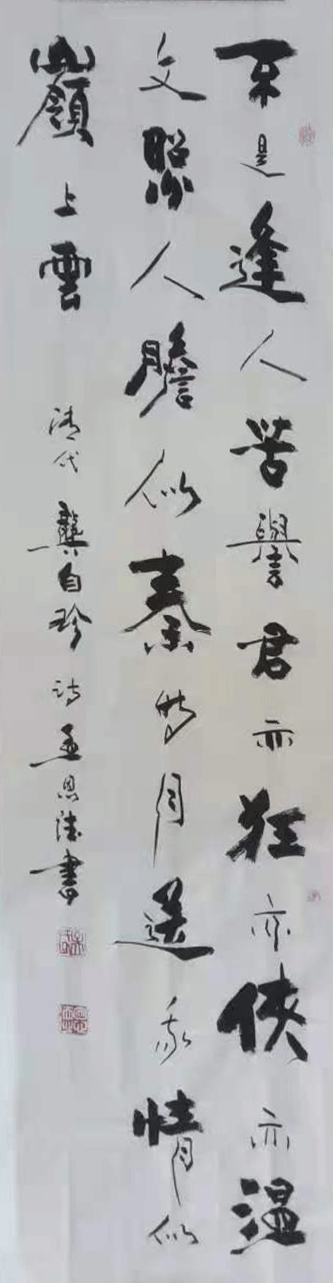 不是逢人苦譽君亦狂亦俠亦温
文照人膽似秦时月送我情似
嶺上雲
清代龔自珍诗孟德書